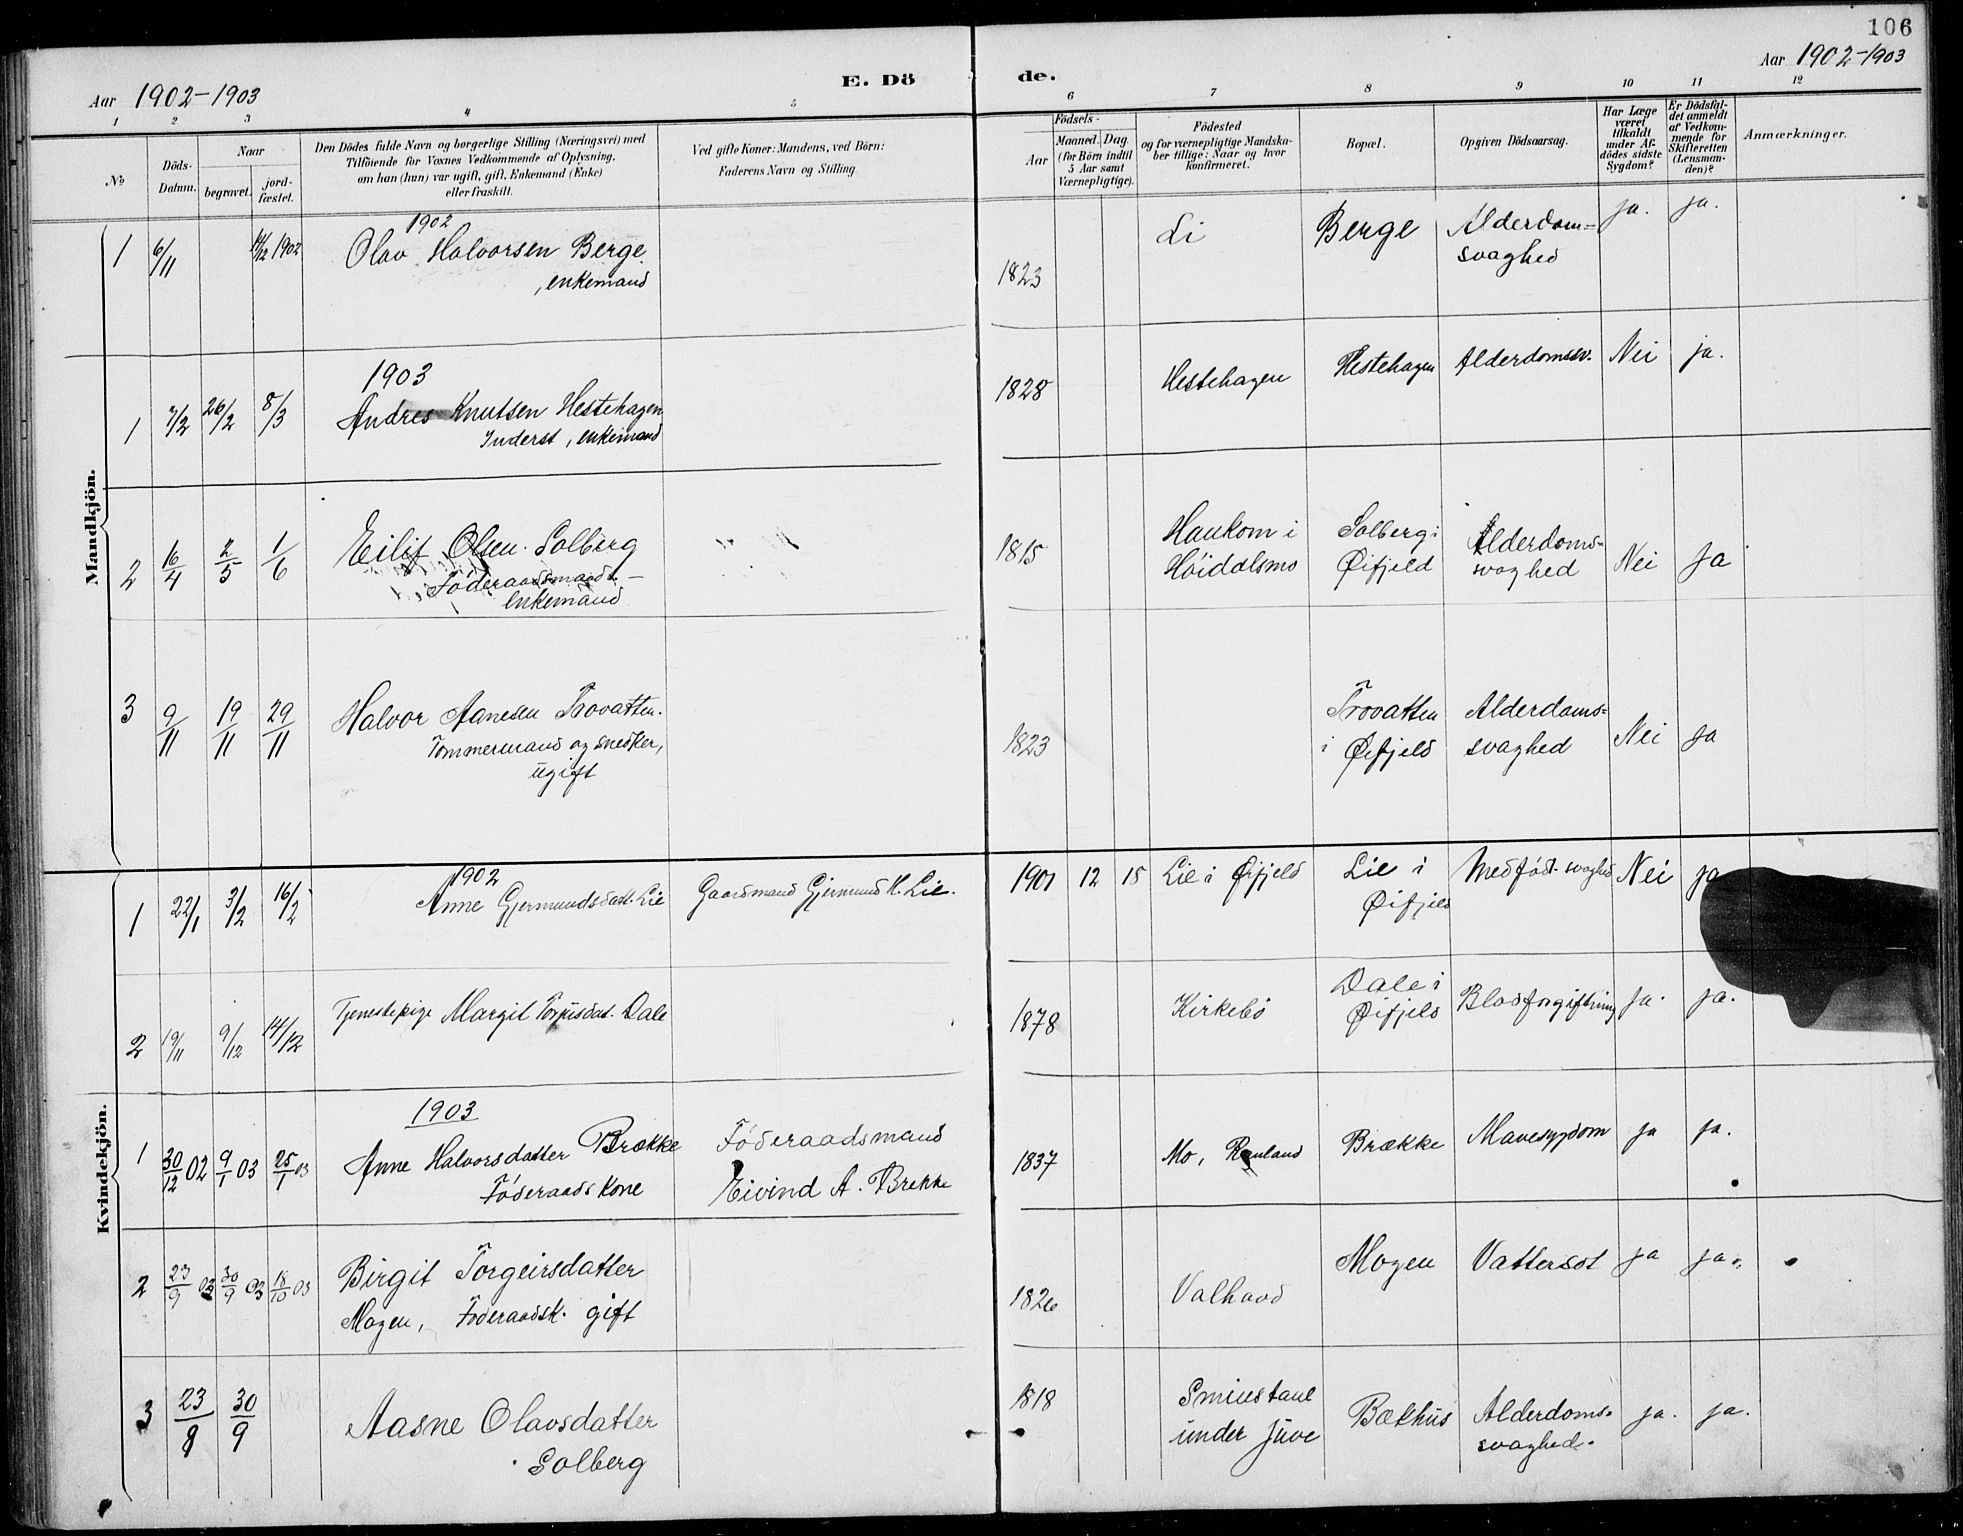 106
Aar 1902-1903
E. Dö
de.
Aar 1902-1903
1 2 3 4 5 6 7 8 9 10 11 12
No
Döds-
Datum.
Naar
begravet.
jord-
fæstet.
Den Dödes fulde Navn og borgerlige Stilling (Næringsvei) med
Tilföiende for Voxnes Vedkommende af Oplysning,
om han (hun) var ugift, gift, Enkemand (Enke)
eller fraskilt.
Ved gifte Koner: Mandens, ved Börn:
Faderens Navn og Stilling.
Födsels-
Aar
Maaned. Dag.
(for Börn indtil
5 Aar samt
Værnepligtige).
Födested
og for værnepligtige Mandska-
ber tillige: Naar og hvor
konfirmeret.
Bopæl.
Opgiven Dödsaarsag.
Har Læge
været
tilkaldt
under Af-
dödes sidste
Sygdom?
Er Dödsfal-
det anmeldt
af Vedkom-
mende for
Skifteretten
(Lensman-
den)?
Anmærkninger.
Mandkjön.
1902
1 6/11 1902 Olav Halvorsen Berge 1823 Li Berge Alderdom= ja. ja.
, enkemand svaghed
1903
1 7/2 26/2 8/3 Andres Knutsen Hestehagen 1828 Hestehagen Hestehagen Alderdomssv. Nei ja.
Inderst, enkemand
2 16/4 2/5 1/6 Eilif Olsen Solberg 1815 Haukom i Solberg i Alderdoms= Nei Ja
Föderaadsmand - Höidalsmo Øifjeld svaghed
enkemand
3 9/11 19/11 29/11 Halvor Aanesen Trovatten. 1823 Trovatten Alderdoms= Nei Ja
Tømmermand og snedker, i Øifjeld svaghed
ugift
Kvindekjön.
1902
1 22/1 3/2 16/2 Anne Gjermundsdatt. Lie Gaardmand Gjermund K. Lie. 1901 12 15 Lie i Øifjeld Lie i Medfödt svaghed Nei ja
Øifjeld
2 19/11 9/12 14/12 Tjenestepige Margit Torjusdat. Dale 1878 Kirkebö Dale i Blodforgiftning ja. ja.
Øifjeld
1903
1 30/12 02 9/1 03 25/1 03 Anne Halvorsdatter Brække Föderaadsmand 1837 Mo, Rauland Brække Mavesygdom ja ja.
Föderaadskone Eivind A. Brekke
2 23/9 03 30/9 03 18/10 03 Birgit Torgeirsdatter 1826 Valhaud Mogen Vattersot ja ja.
Mogen, Föderaadsk. gift
3 23/8 30/9 Aasne Olavsdatter 1818 Smiustaul Bækhus Alderdoms= ja. ja.
Solberg under Juve svaghed.